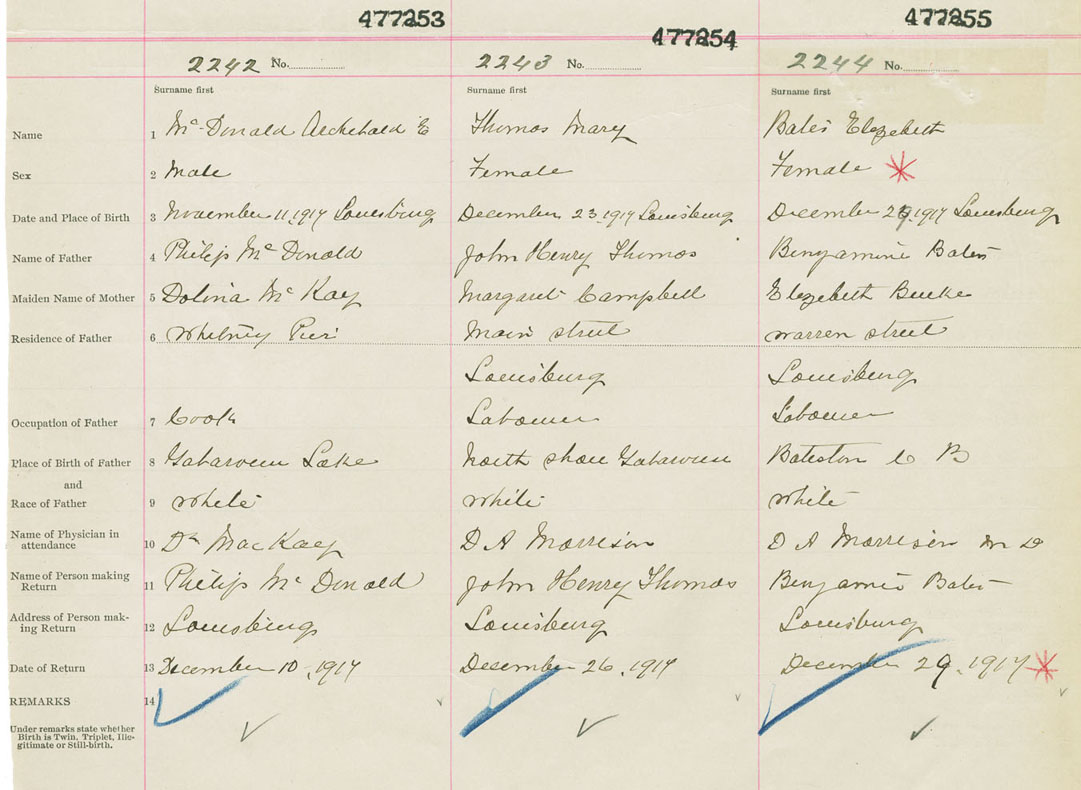 477253 477254 477255
2242 No. 2243 No. 2244 No.
Surname first Surname first Surname first
Name 1 Mc Donald Archibald E Thomas Mary Bates Elezebeth
Sex 2 Male Female Female
Date and Place of Birth 3 November 11, 1917 Louisburg December 23, 1917 Louisburg December 1917 Louisburg
Name of Father 4 Philip Mc Donald John Henry Thomas Benjamine Bates
Maiden Name of Mother 5 Dolina Mc Kay Margaret Campbell Elezebeth Burke
Residence of Father 6 Whitney Pier Main street Warren street
Louisburg Louisburg
Occupation of Father 7 Cook Labourer Labourer
Place of Birth of Father 8 Gabarouse Lake North shore Gabarouse Bateston C B
and
Race of Father 9 White White White
Name of Physician in
attendance 10 Dr MacKay D A Morrison D A Morrison M D
Name of Person making
Return 11 Philip Mc Donald John Henry Thomas Benjamine Bates
Address of Person mak-
ing Return 12 Louisburg Louisburg Louisburg
Date of Return 13 December 10, 1917 December 26, 1917 December 29, 1917
REMARKS 14
Under remarks state whether
Birth is Twin, Triplet, Ille-
gitimate or Still-birth.